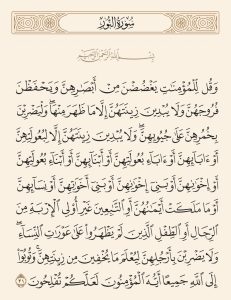 سُورَةُ النُّورِ
بِسْمِ اللَّهِ الرَّحْمَٰنِ الرَّحِيمِ
وَقُل لِّلْمُؤْمِنَٰتِ يَغْضُضْنَ مِنْ أَبْصَٰرِهِنَّ وَيَحْفَظْنَ
فُرُوجَهُنَّ وَلَا يُبْدِينَ زِينَتَهُنَّ إِلَّا مَا ظَهَرَ مِنْهَا ۖ وَلْيَضْرِبْنَ
بِخُمُرِهِنَّ عَلَىٰ جُيُوبِهِنَّ ۖ وَلَا يُبْدِينَ زِينَتَهُنَّ إِلَّا لِبُعُولَتِهِنَّ
أَوْ ءَابَآئِهِنَّ أَوْ ءَابَآءِ بُعُولَتِهِنَّ أَوْ أَبْنَآئِهِنَّ أَوْ أَبْنَآءِ بُعُولَتِهِنَّ
أَوْ إِخْوَٰنِهِنَّ أَوْ بَنِىٓ إِخْوَٰنِهِنَّ أَوْ بَنِىٓ أَخَوَٰتِهِنَّ أَوْ نِسَآئِهِنَّ
أَوْ مَا مَلَكَتْ أَيْمَٰنُهُنَّ أَوِ التَّٰبِعِينَ غَيْرِ أُو۟لِى الْإِرْبَةِ مِنَ
الرِّجَالِ أَوِ الطِّفْلِ الَّذِينَ لَمْ يَظْهَرُوا۟ عَلَىٰ عَوْرَٰتِ النِّسَآءِ ۖ
وَلَا يَضْرِبْنَ بِأَرْجُلِهِنَّ لِيُعْلَمَ مَا يُخْفِينَ مِن زِينَتِهِنَّ ۚ وَتُوبُوٓا۟
إِلَى اللَّهِ جَمِيعًا أَيُّهَ الْمُؤْمِنُونَ لَعَلَّكُمْ تُفْلِحُونَ ٣١